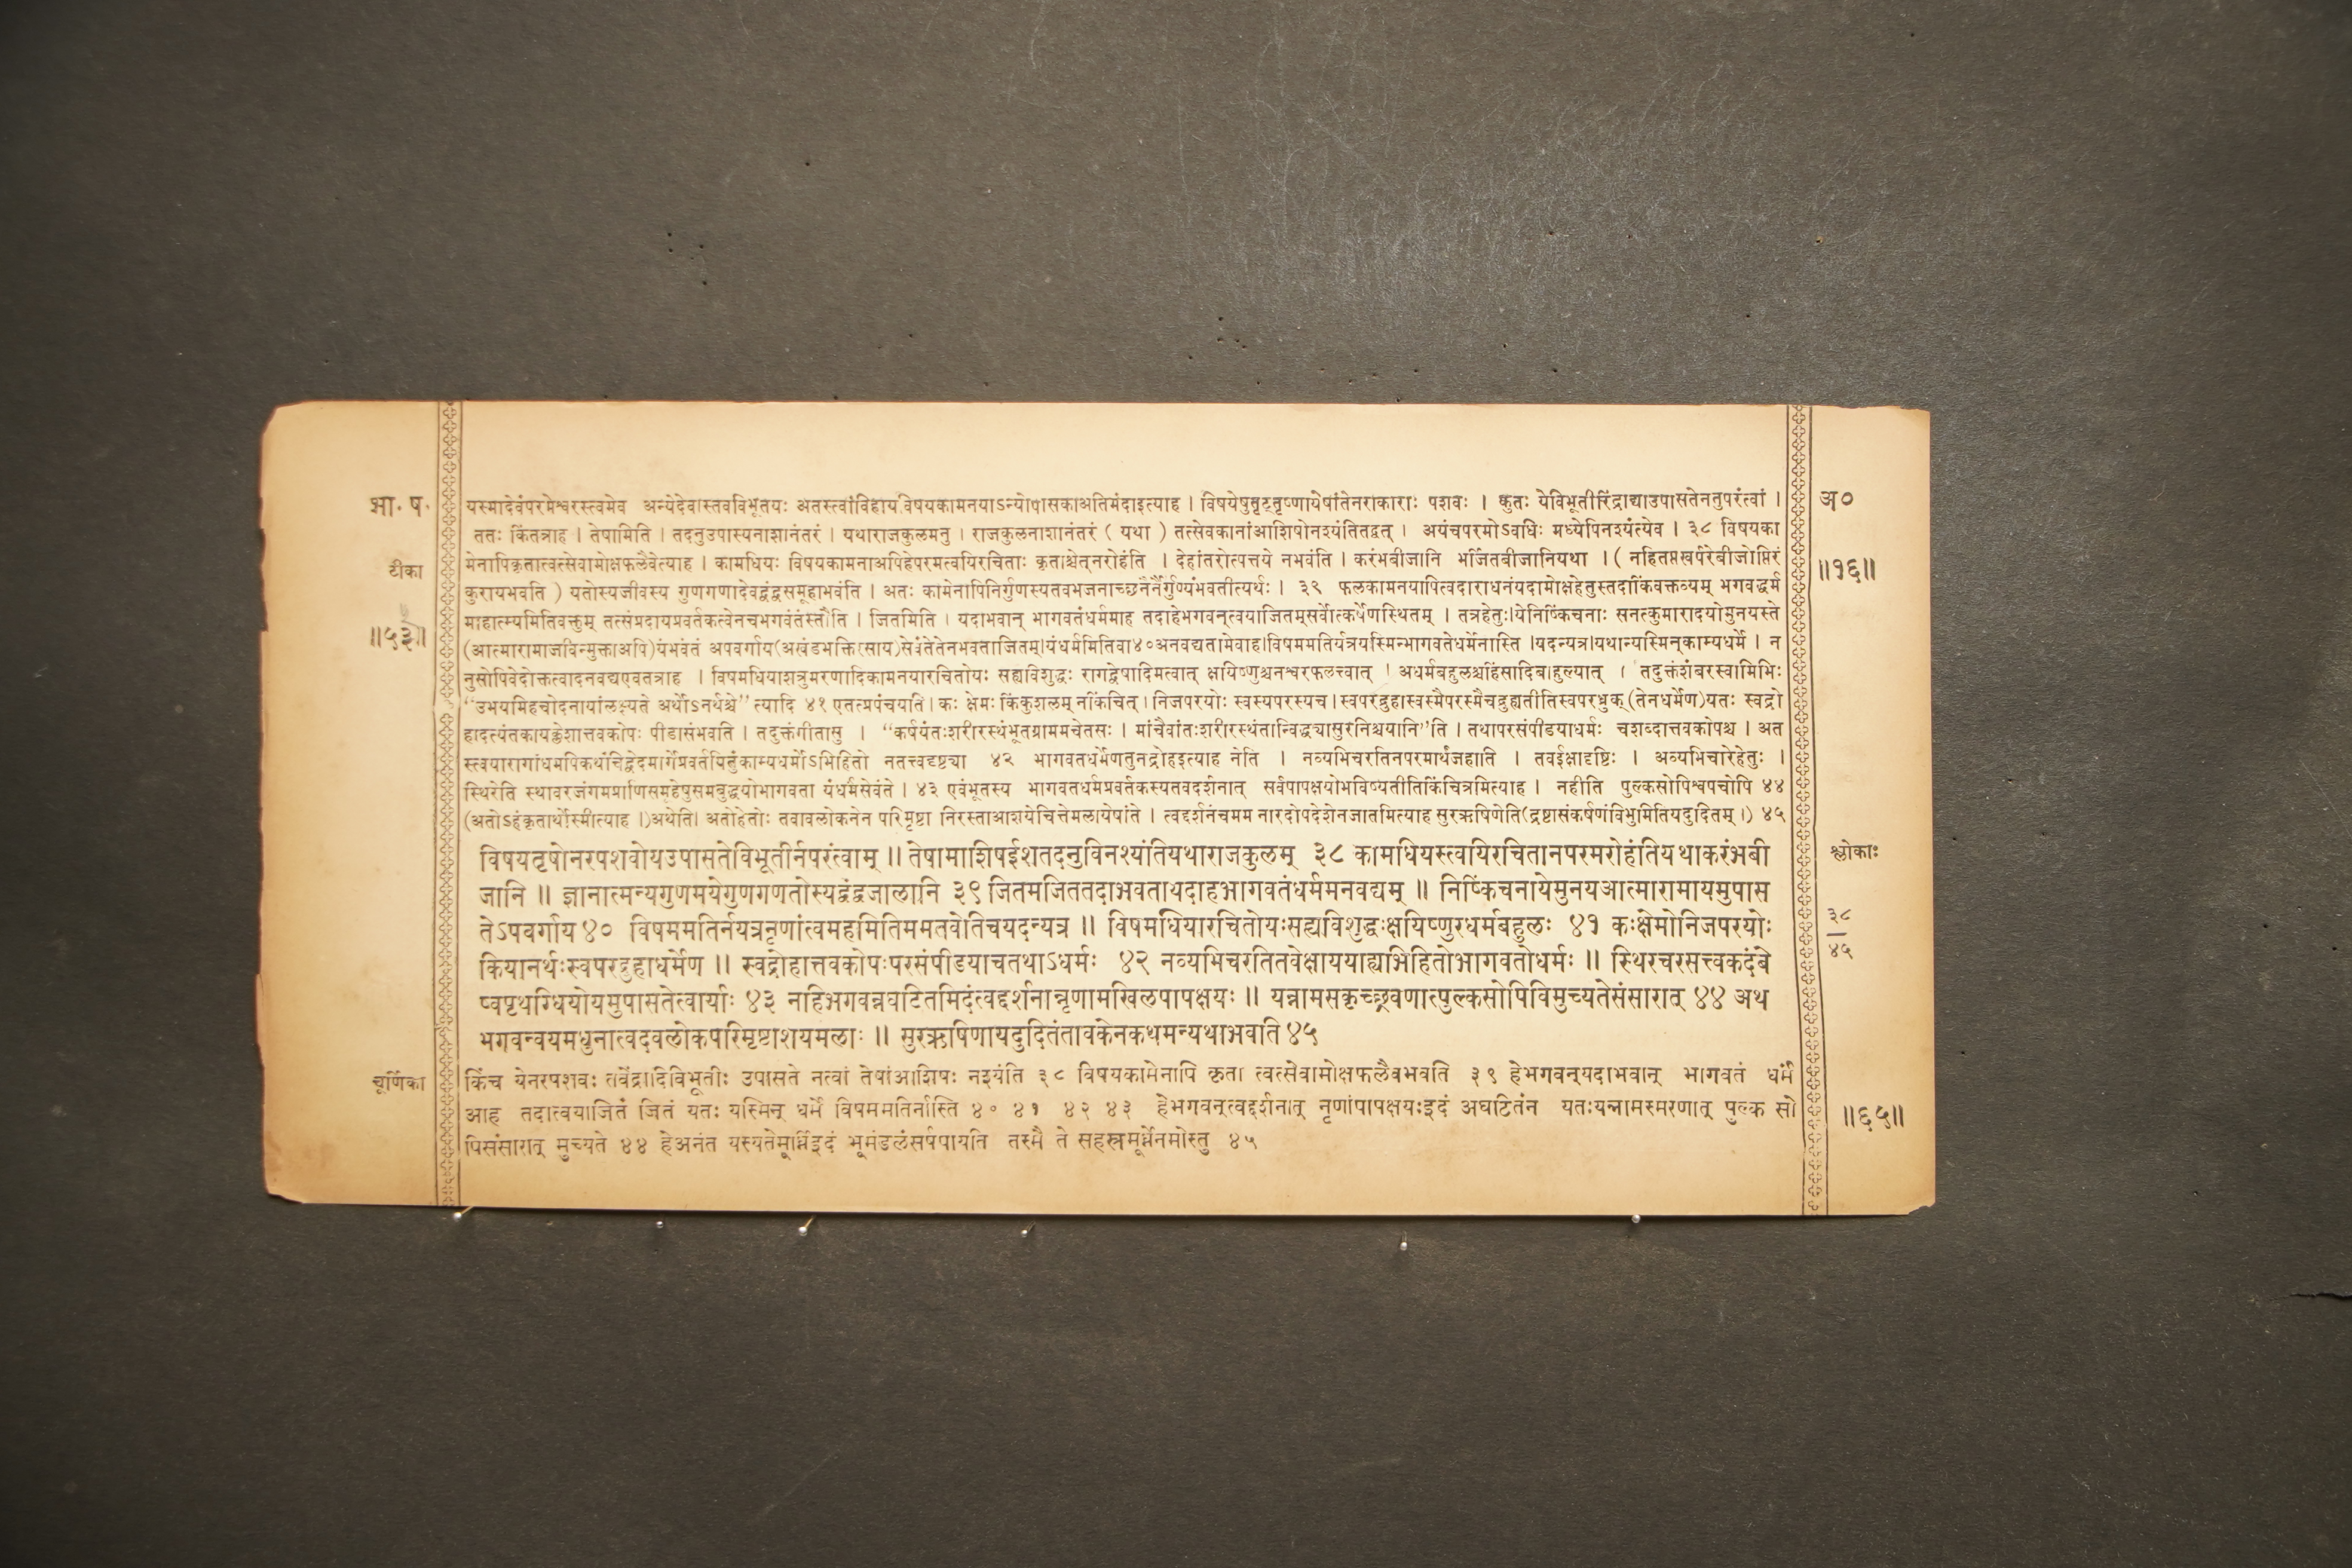 भा. ष.
यस्मादेवंपरमेश्वरस्त्वमेव अन्येदेवास्तवविभूतयः अतस्त्वांविहाय विषयकामनयाऽन्योपासकाअतिमंदाइत्याह । विषयेषुतृट्तृष्णायेषांतेनराकाराः पशवः । कुतः येविभूतीरिंद्राद्याउपासतेनतुपरंत्वां ।
अ०
ततः किंतत्राह । तेषामिति । तदनुउपास्यनाशानंतरं । यथाराजकुलमनु । राजकुलनाशानंतरं ( यथा ) तत्सेवकानांआशिषोनश्यंतितद्वत् । अयंचपरमोऽवधिः मध्येपिनश्यंत्येव । ३८ विषयका
टीका
मेनापिकृतात्वत्सेवामोक्षफलैवेत्याह । कामधियः विषयकामनाअपिहेपरमत्वयिरचिताः कृताश्चेत्नरोहंति । देहांतरोत्पत्तये नभवंति । करंभबीजानि भर्जितबीजानियथा । ( नहितप्तखर्परेबीजोप्तिरं
॥१६॥
कुरायभवति ) यतोस्यजीवस्य गुणगणादेवद्वंद्वसमूहाभवंति । अतः कामेनापिनिर्गुणस्यतवभजनाच्छनैर्नैर्गुण्यंभवतीत्यर्थः । ३९ फलकामनयापित्वदाराधनंयदामोक्षहेतुस्तदाकिंवक्तव्यम् भगवद्धर्म
॥५३॥
माहात्म्यमितिवक्तुम् तत्संप्रदायप्रवर्तकत्वेनचभगवंतंस्तौति । जितमिति । यदाभवान् भागवतंधर्ममाह तदाहेभगवन्त्वयाजितम्सर्वोत्कर्षेणस्थितम् । तत्रहेतुः।येनिष्किंचनाः सनत्कुमारादयोमुनयस्ते
(आत्मारामाजीवन्मुक्ताअपि)यंभवंतं अपवर्गाय(अखंडभक्तिरसाय)सेवंतेतेनभवताजितम्।यंधर्ममितिवा४०अनवद्यतामेवाह।विषममतिर्यत्रयस्मिन्भागवतेधर्मेनास्ति ।यदन्यत्र।यथान्यस्मिन्काम्यधर्मे । न
नुसोपिवेदोक्तत्वादनवद्यएवतत्राह । विषमधियाशत्रुमरणादिकामनयारचितोयः सह्यविशुद्धः रागद्वेषादिमत्वात् क्षयिष्णुश्चनश्वरफलत्वात् । अधर्मबहुलश्चहिंसादिबाहुल्यात् । तदुक्तंशबरस्वामिभिः
“उभयमिहचोदनायांलक्ष्यते अर्थोऽनर्थश्चे” त्यादि ४१ एतत्प्रपंचयति । कः क्षेमः किंकुशलम् नकिंचित् । निजपरयोः स्वस्यपरस्यच । स्वपरद्रुहास्वस्मैपरस्मैचद्रुह्यतीतिस्वपरध्रुक् (तेनधर्मेण)यतः स्वद्रो
हादत्यंतकायक्लेशात्तवकोपः पीडासंभवति । तदुक्तंगीतासु । “कर्षयंतःशरीरस्थंभूतग्राममचेतसः । मांचैवांतःशरीरस्थंतान्विद्ध्यासुरनिश्चयानि”ति । तथापरसंपीडयाधर्मः चशब्दात्तवकोपश्च । अत
स्त्वयारागांधमपिकथंचिद्वेदमार्गेप्रवर्तयितुंकाम्यधर्मोऽभिहितो नतत्त्वदृष्ट्या ४२ भागवतधर्मेणतुनद्रोहइत्याह नेति । नव्यभिचरतिनपरमार्थंजहाति । तवईक्षादृष्टिः । अव्यभिचारेहेतुः ।
स्थिरेति स्थावरजंगमप्राणिसमूहेषुसमबुद्धयोभागवता यंधर्मंसेवंते । ४३ एवंभूतस्य भागवतधर्मप्रवर्तकस्यतवदर्शनात् सर्वपापक्षयोभविष्यतीतिकिंचित्रमित्याह । नहीति पुल्कसोपिश्वपचोपि ४४
(अतोऽहंकृतार्थोस्मीत्याह ।)अथेति। अतोहेतोः तवावलोकनेन परिमृष्टा निरस्ताआशयेचित्तेमलायेषांते । त्वद्दर्शनंचमम नारदोपदेशेनजातमित्याह सुरऋषिणेति(द्रष्टासंकर्षणंविभुमितियदुदितम् ।) ४५
विषयतृषोनरपशवोयउपासतेविभूतीर्नपरंत्वाम् ॥ तेषामाशिषईशतदनुविनश्यंतियथाराजकुलम् ३८ कामधियस्त्वयिरचितानपरमरोहंतियथाकरंभबी
श्लोकाः
जानि ॥ ज्ञानात्मन्यगुणमयेगुणगणतोस्यद्वंद्वजालानि ३९ जितमजिततदाभवतायदाहभागवतंधर्ममनवद्यम् ॥ निष्किंचनायेमुनयआत्मारामायमुपास
३८
तेऽपवर्गाय ४० विषममतिर्नयत्रनृणांत्वमहमितिममतवेतिचयदन्यत्र ॥ विषमधियारचितोयःसह्यविशुद्धःक्षयिष्णुरधर्मबहुलः ४१ कःक्षेमोनिजपरयोः
४५
कियानर्थःस्वपरद्रुहाधर्मेण ॥ स्वद्रोहात्तवकोपःपरसंपीडयाचतथाऽधर्मः ४२ नव्यभिचरतितवेक्षाययाह्यभिहितोभागवतोधर्मः ॥ स्थिरचरसत्त्वकदंबे
ष्वपृथग्धियोयमुपासतेत्वार्याः ४३ नहिभगवन्नघटितमिदंत्वद्दर्शनान्नृणामखिलपापक्षयः ॥ यन्नामसकृच्छ्रवणात्पुल्कसोपिविमुच्यतेसंसारात् ४४ अथ
भगवन्वयमधुनात्वदवलोकपरिमृष्टाशयमलाः ॥ सुरऋषिणायदुदितंतावकेनकथमन्यथाभवति ४५
चूर्णिका
किंच येनरपशवः तवेंद्रादिविभूतीः उपासते नत्वां तेषांआशिषः नश्यंति ३८ विषयकामेनापि कृता त्वत्सेवामोक्षफलैवभवति ३९ हेभगवन्यदाभवान् भागवतं धर्मं
आह तदात्वयाजितं जितं यतः यस्मिन् धर्मे विषममतिर्नास्ति ४० ४१ ४२ ४३ हेभगवन्त्वद्दर्शनात् नृणांपापक्षयःइदं अघटितंन यतःयन्नामस्मरणात् पुल्क सो
॥६५॥
पिसंसारात् मुच्यते ४४ हेअनंत यस्यतेमूर्ध्निइदं भूमंडलंसर्षपायति तस्मै ते सहस्रमूर्ध्नेनमोस्तु ४५